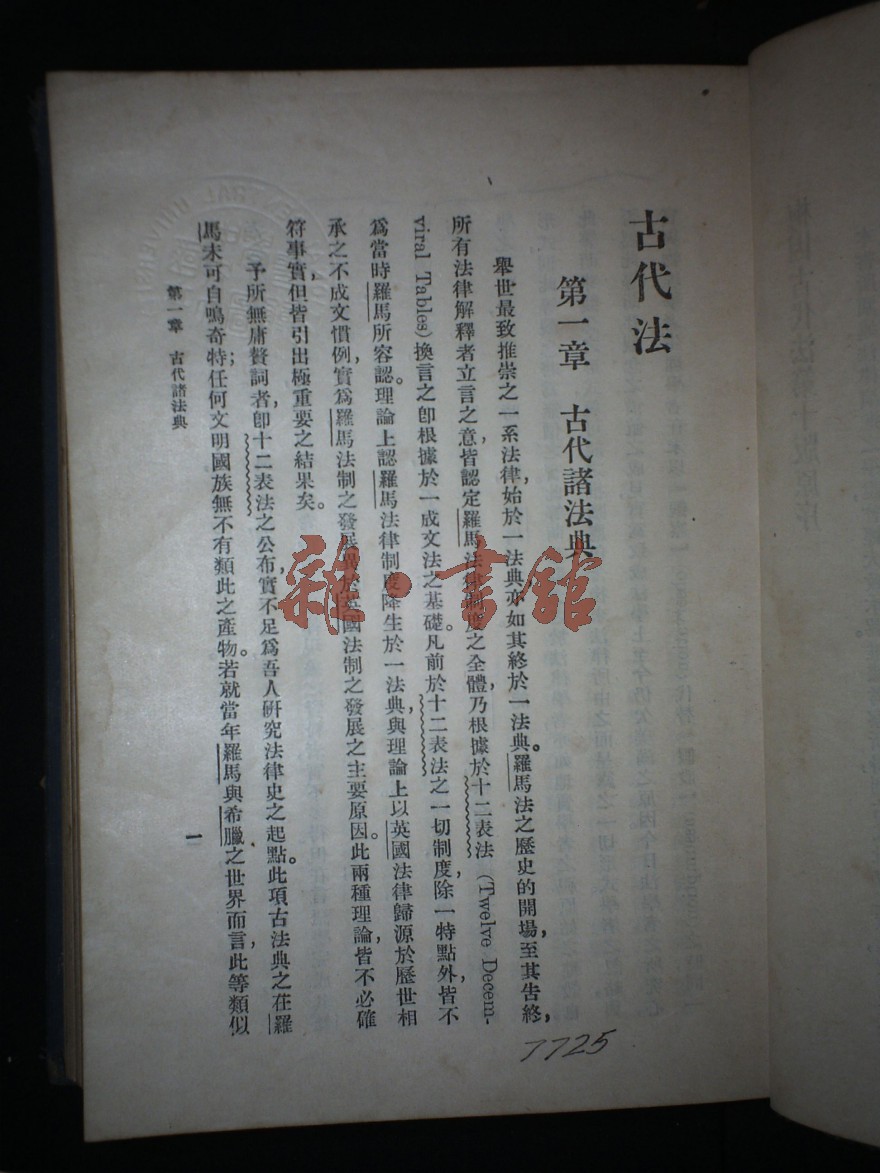 古代法
第一章 古代諸法典
舉世最致推崇之一系法律，始於一法典亦如其終於一法典。羅馬法之歷史的開場至其告終，
所有法律解釋者立言之意，皆認定羅馬法律制度之全體，乃根據於十二表法（Twelve Decem-
viral Tables）換言之卽根據於一成文法之基礎。凡前於十二表法之一切制度，除一特點外，皆不
爲當時羅馬所容認。理論上認羅馬法律制度降生於一法典，與理論上以英國法律歸源於歷世相
承之不成文慣例，實爲羅馬法制之發展異於英國法制之發展之主要原因。此兩種理論，皆不必確
符事實，但皆引出極重要之結果矣。
予所無庸贅詞者，卽十二表法之公布，實不足爲吾人研究法律史之起點。此項古法典之在羅
馬未可自鳴奇特任何文明國族無不有類此之產物。若就當年羅馬與希臘之世界而言，此等類似
第一章 古代諸法典
一
雜·書館
7725